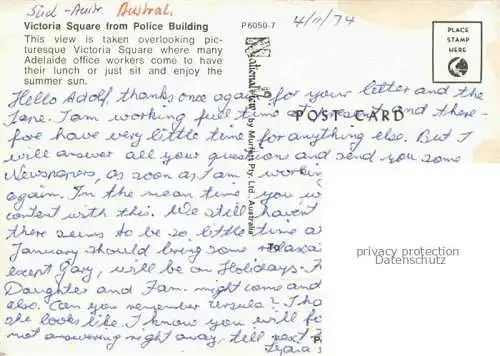 Süd-Austr. Austral.
4/11/74
Victoria Square from Police Building
P6050-7
This view is taken overlooking pic-
turesque Victoria Square where many
Adelaide office workers come to have
their lunch or just sit and enjoy the
summer sun.
PLACE
STAMP
HERE
POST CARD
National View by Murfett Pty. Ltd., Australia
Hello Adolf, thanks once again for your letter and the
Tape. I am working full time at present and there-
fore have very little time for anything else. But I
will answer all your questions and send you some
Newspapers, as soon as I am working
again. In the mean time you
content with this. We still haven't
there seems to be so little time
January should bring some
except Gary, will be on Holidays.
Daughter and Fam. might come and
also. Can you remember Ursula?
she looks like. I know you will
not answering right away, till next
To
privacy protection
Datenschutz